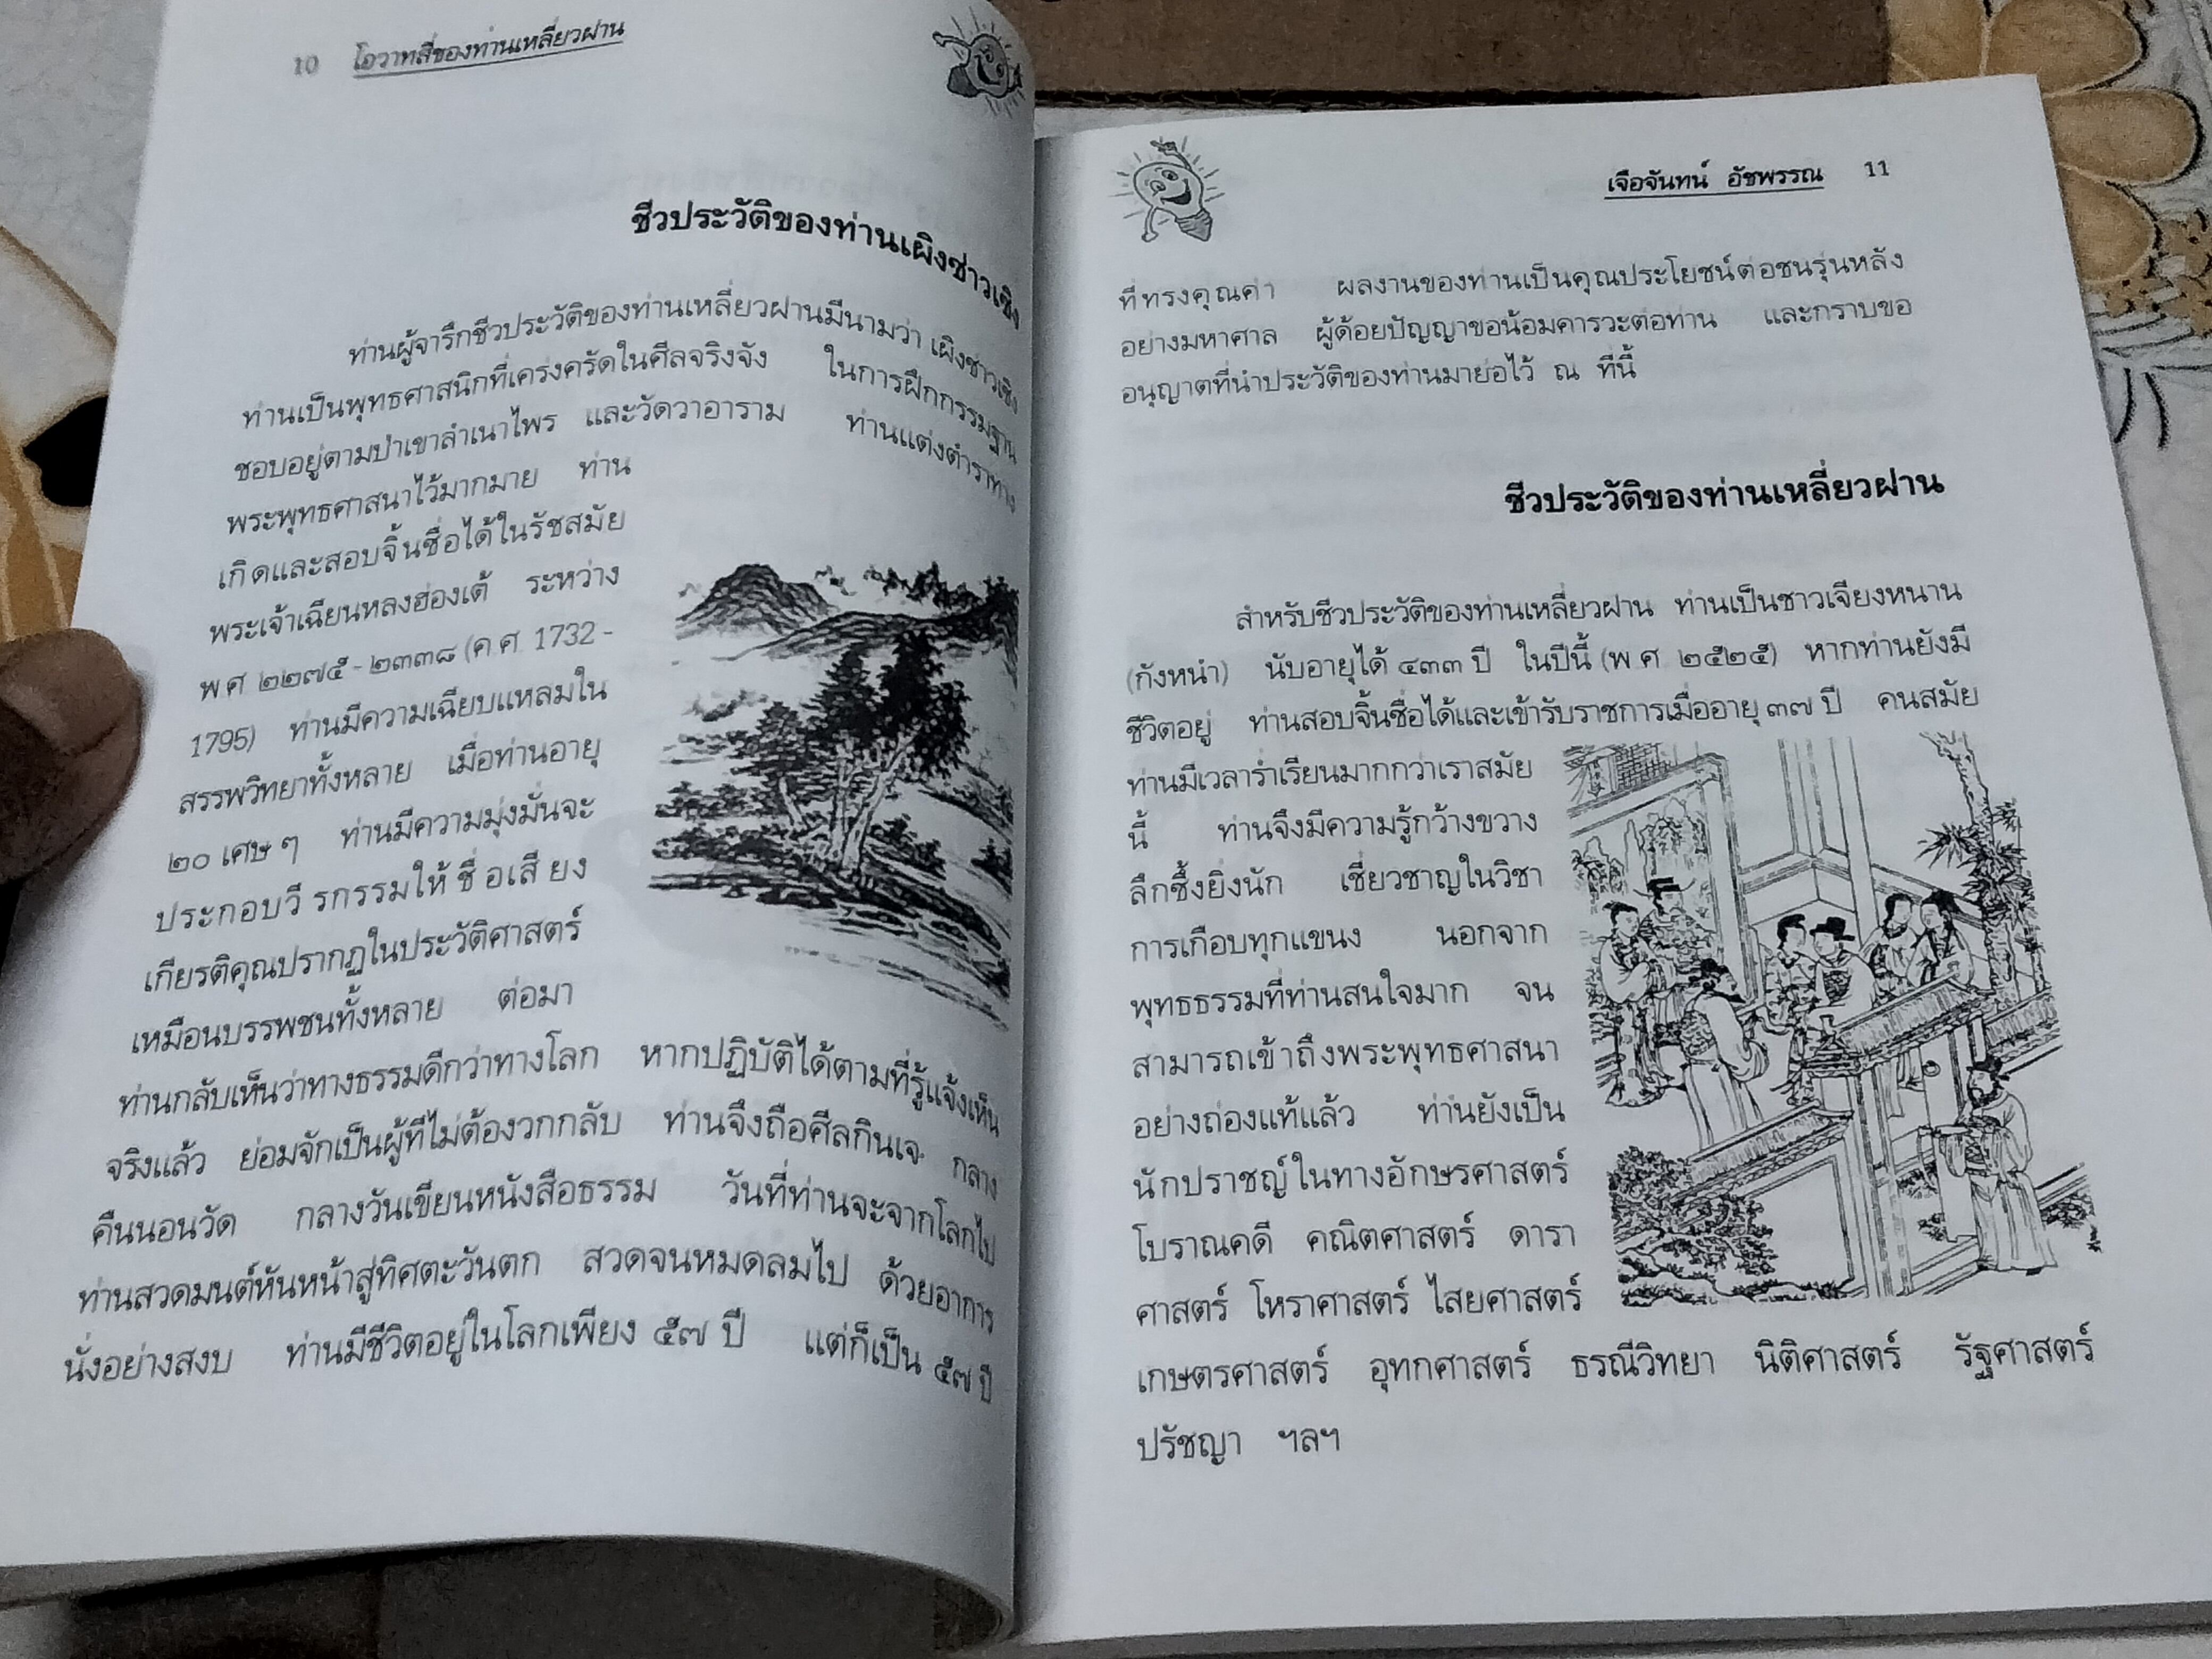 10 โอวาทสี่ของท่านเหลี่ยวฝาน
ชีวประวัติของท่านเผิงซ่าวเซิง
ท่านผู้จารึกชีวประวัติของท่านเหลี่ยวฝานมีนามว่า เผิงซ่าวเซิง
ท่านเป็นพุทธศาสนิกที่เคร่งครัดในศีลจริงจัง ในการฝึกกรรมฐาน
ชอบอยู่ตามป่าเขาลำเนาไพร และวัดวาอาราม ท่านแต่งตำราทาง
พระพุทธศาสนาไว้มากมาย ท่าน
เกิดและสอบจิ้นซื่อได้ในรัชสมัย
พระเจ้าเฉียนหลงฮ่องเต้ ระหว่าง
พ.ศ. ๒๒๗๕ - ๒๓๓๘ (ค.ศ. 1732 -
1795) ท่านมีความเฉียบแหลมใน
สรรพวิทยาทั้งหลาย เมื่อท่านอายุ
๒๐ เศษ ๆ ท่านมีความมุ่งมั่นจะ
ประกอบวีรกรรมให้ชื่อเสียง
เกียรติคุณปรากฏในประวัติศาสตร์
เหมือนบรรพชนทั้งหลาย ต่อมา
ท่านกลับเห็นว่าทางธรรมดีกว่าทางโลก หากปฏิบัติได้ตามที่รู้แจ้งเห็น
จริงแล้ว ย่อมจักเป็นผู้ที่ไม่ต้องวกกลับ ท่านจึงถือศีลกินเจ กลาง
คืนนอนวัด กลางวันเขียนหนังสือธรรม วันที่ท่านจะจากโลกไป
ท่านสวดมนต์หันหน้าสู่ทิศตะวันตก สวดจนหมดลมไป ด้วยอาการ
นั่งอย่างสงบ ท่านมีชีวิตอยู่ในโลกเพียง ๕๗ ปี แต่ก็เป็น ๕๗ ปี
เจือจันทน์ อัชพรรณ 11
ที่ทรงคุณค่า ผลงานของท่านเป็นคุณประโยชน์ต่อชนรุ่นหลัง
อย่างมหาศาล ผู้ด้อยปัญญาขอน้อมคารวะต่อท่าน และกราบขอ
อนุญาตที่นำประวัติของท่านมาย่อไว้ ณ ที่นี้
ชีวประวัติของท่านเหลี่ยวฝาน
สำหรับชีวประวัติของท่านเหลี่ยวฝาน ท่านเป็นชาวเจียงหนาน
(กังหนำ) นับอายุได้ ๔๓๓ ปี ในปีนี้ (พ.ศ. ๒๕๒๕) หากท่านยังมี
ชีวิตอยู่ ท่านสอบจิ้นซื่อได้และเข้ารับราชการเมื่ออายุ ๓๗ ปี คนสมัย
ท่านมีเวลาร่ำเรียนมากกว่าเราสมัย
นี้ ท่านจึงมีความรู้กว้างขวาง
ลึกซึ้งยิ่งนัก เชี่ยวชาญในวิชา
การเกือบทุกแขนง นอกจาก
พุทธธรรมที่ท่านสนใจมาก จน
สามารถเข้าถึงพระพุทธศาสนา
อย่างถ่องแท้แล้ว ท่านยังเป็น
นักปราชญ์ในทางอักษรศาสตร์
โบราณคดี คณิตศาสตร์ ดารา
ศาสตร์ โหราศาสตร์ ไสยศาสตร์
เกษตรศาสตร์ อุทกศาสตร์ ธรณีวิทยา นิติศาสตร์ รัฐศาสตร์
ปรัชญา ฯลฯ